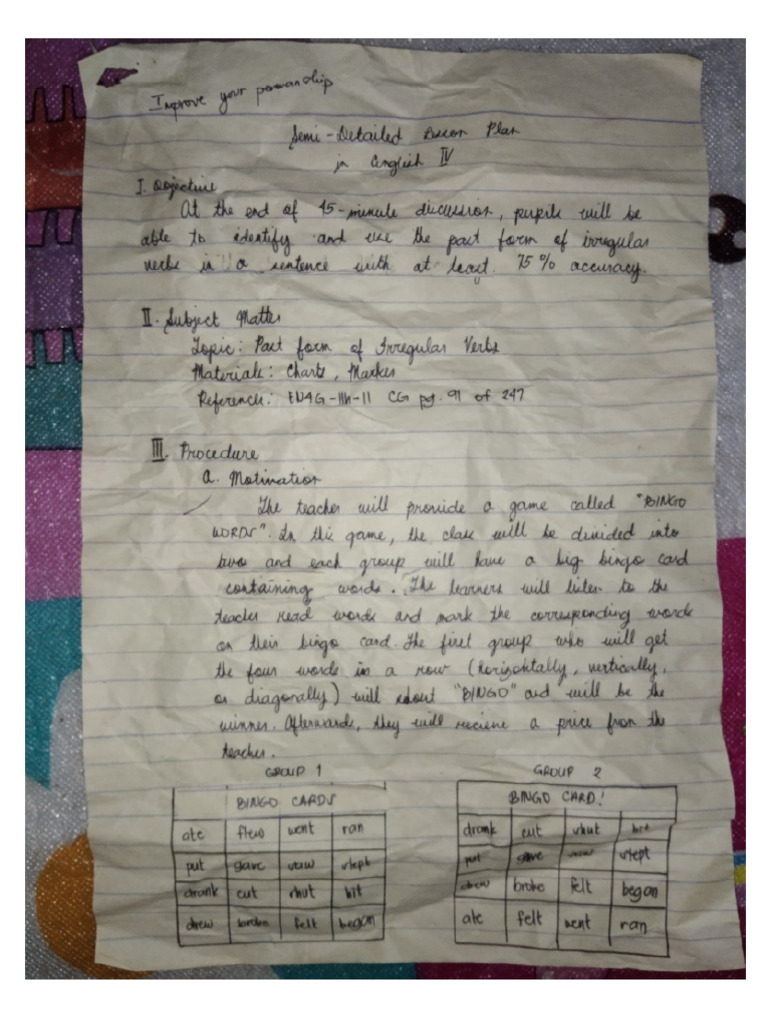 Improve your penmanship
Semi-Detailed Lesson Plan
in English IV
I. Objective
At the end of 45-minute discussion, pupils will be
able to identify and use the past form of irregular
verbs in a sentence with at least 75% accuracy.
II. Subject Matter
Topic: Past form of Irregular Verbs
Materials: Charts, Marker
Reference: EN4G-IIh-11 CG pg. 91 of 247
III. Procedure
a. Motivation
The teacher will provide a game called "BINGO
WORDS". In this game, the class will be divided into
two and each group will have a big bingo card
containing words. The learners will listen to the
teacher read words and mark the corresponding words
on their bingo card. The first group who will get
the four words in a row (horizontally, vertically,
or diagonally) will shout "BINGO" and will be the
winner. Afterwards, they will recieve a price from the
teacher.
GROUP 1
BINGO CARDS
ate flew went ran
put gave saw slept
drank cut shut hit
drew broke felt began
GROUP 2
BINGO CARD!
drank cut shut hit
put gave saw slept
drew broke felt began
ate felt went ran